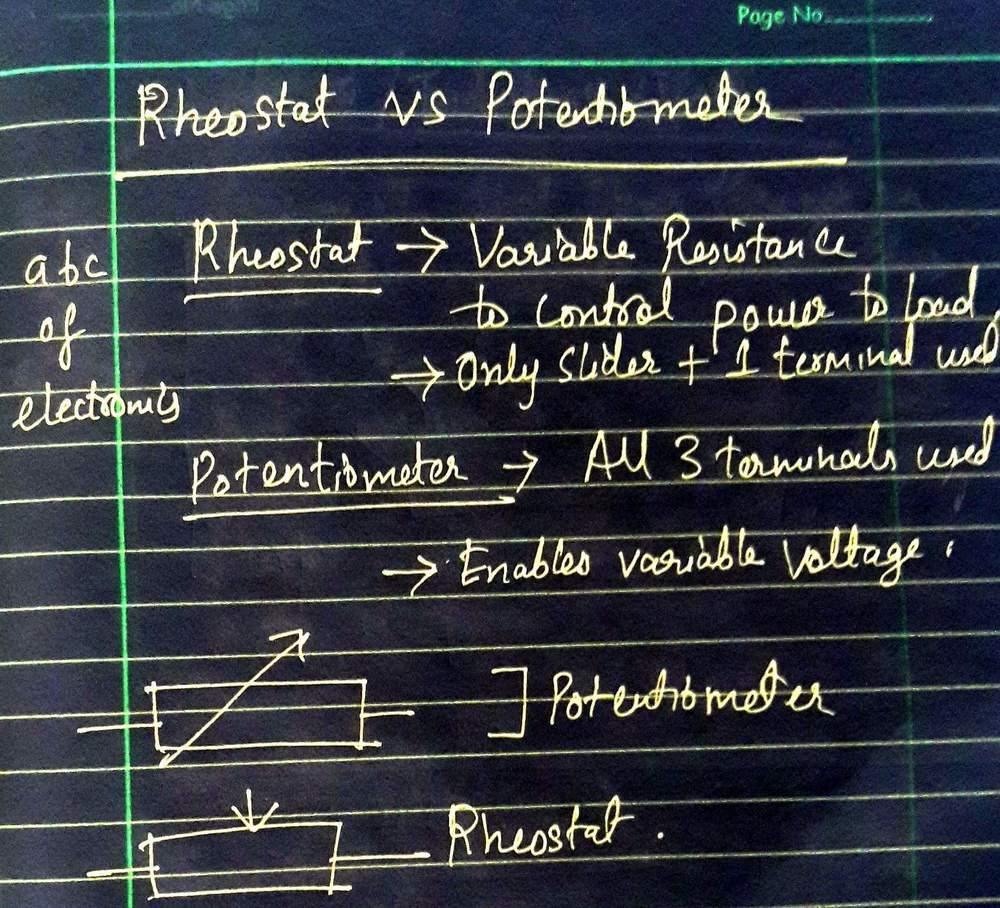 Page No.
Rheostat vs Potentiometer
abc
of
electronics
Rheostat → Variable Resistance
to control power to load.
→ Only slider + 1 terminal used
Potentiometer → All 3 terminals used
→ Enables variable voltage.
] Potentiometer
Rheostat.